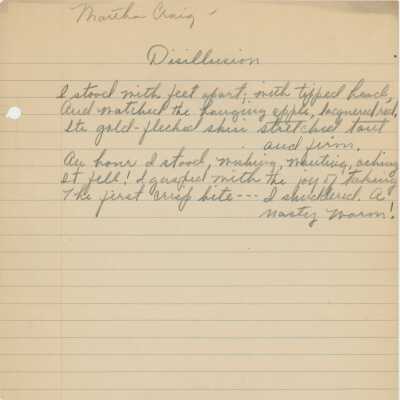 Martha Craig -
Disillusion
I stood with feet apart, with tipped head,
And watched the hanging apple, lacquered red,
Its gold-flecked skin stretched taut
and firm.
An hour I stood, wishing, waiting, asking
It fell! I gasped with the joy of taking
The first crisp bite --- I shuddered. A
nasty worm!